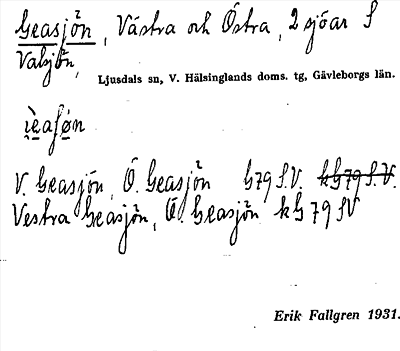 Geasjön, Västra och Östra, 2 sjöar S
Valsjön,
Ljusdals sn, V. Hälsinglands doms. tg, Gävleborgs län.
V. Geasjön, Ö. Geasjön G79 S.V. kG79 S.V.
Vestra Geasjön, Ö. Geasjön k G 79 SV
Erik Fallgren 1931.